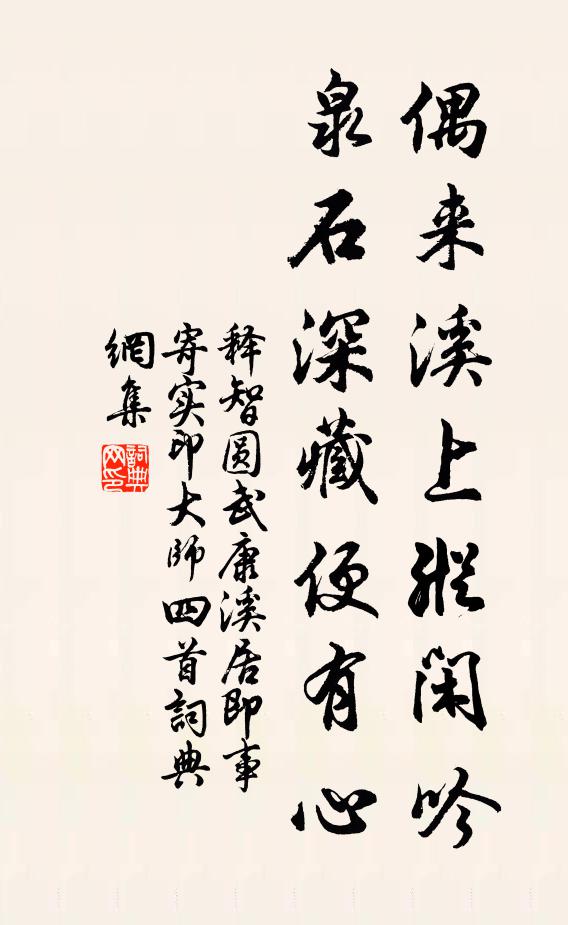 偶来溪上縱闲吟
泉石深藏便有心
释智圆武康溪居即事
寄实印大师四首詞典
網集
詞典
网印